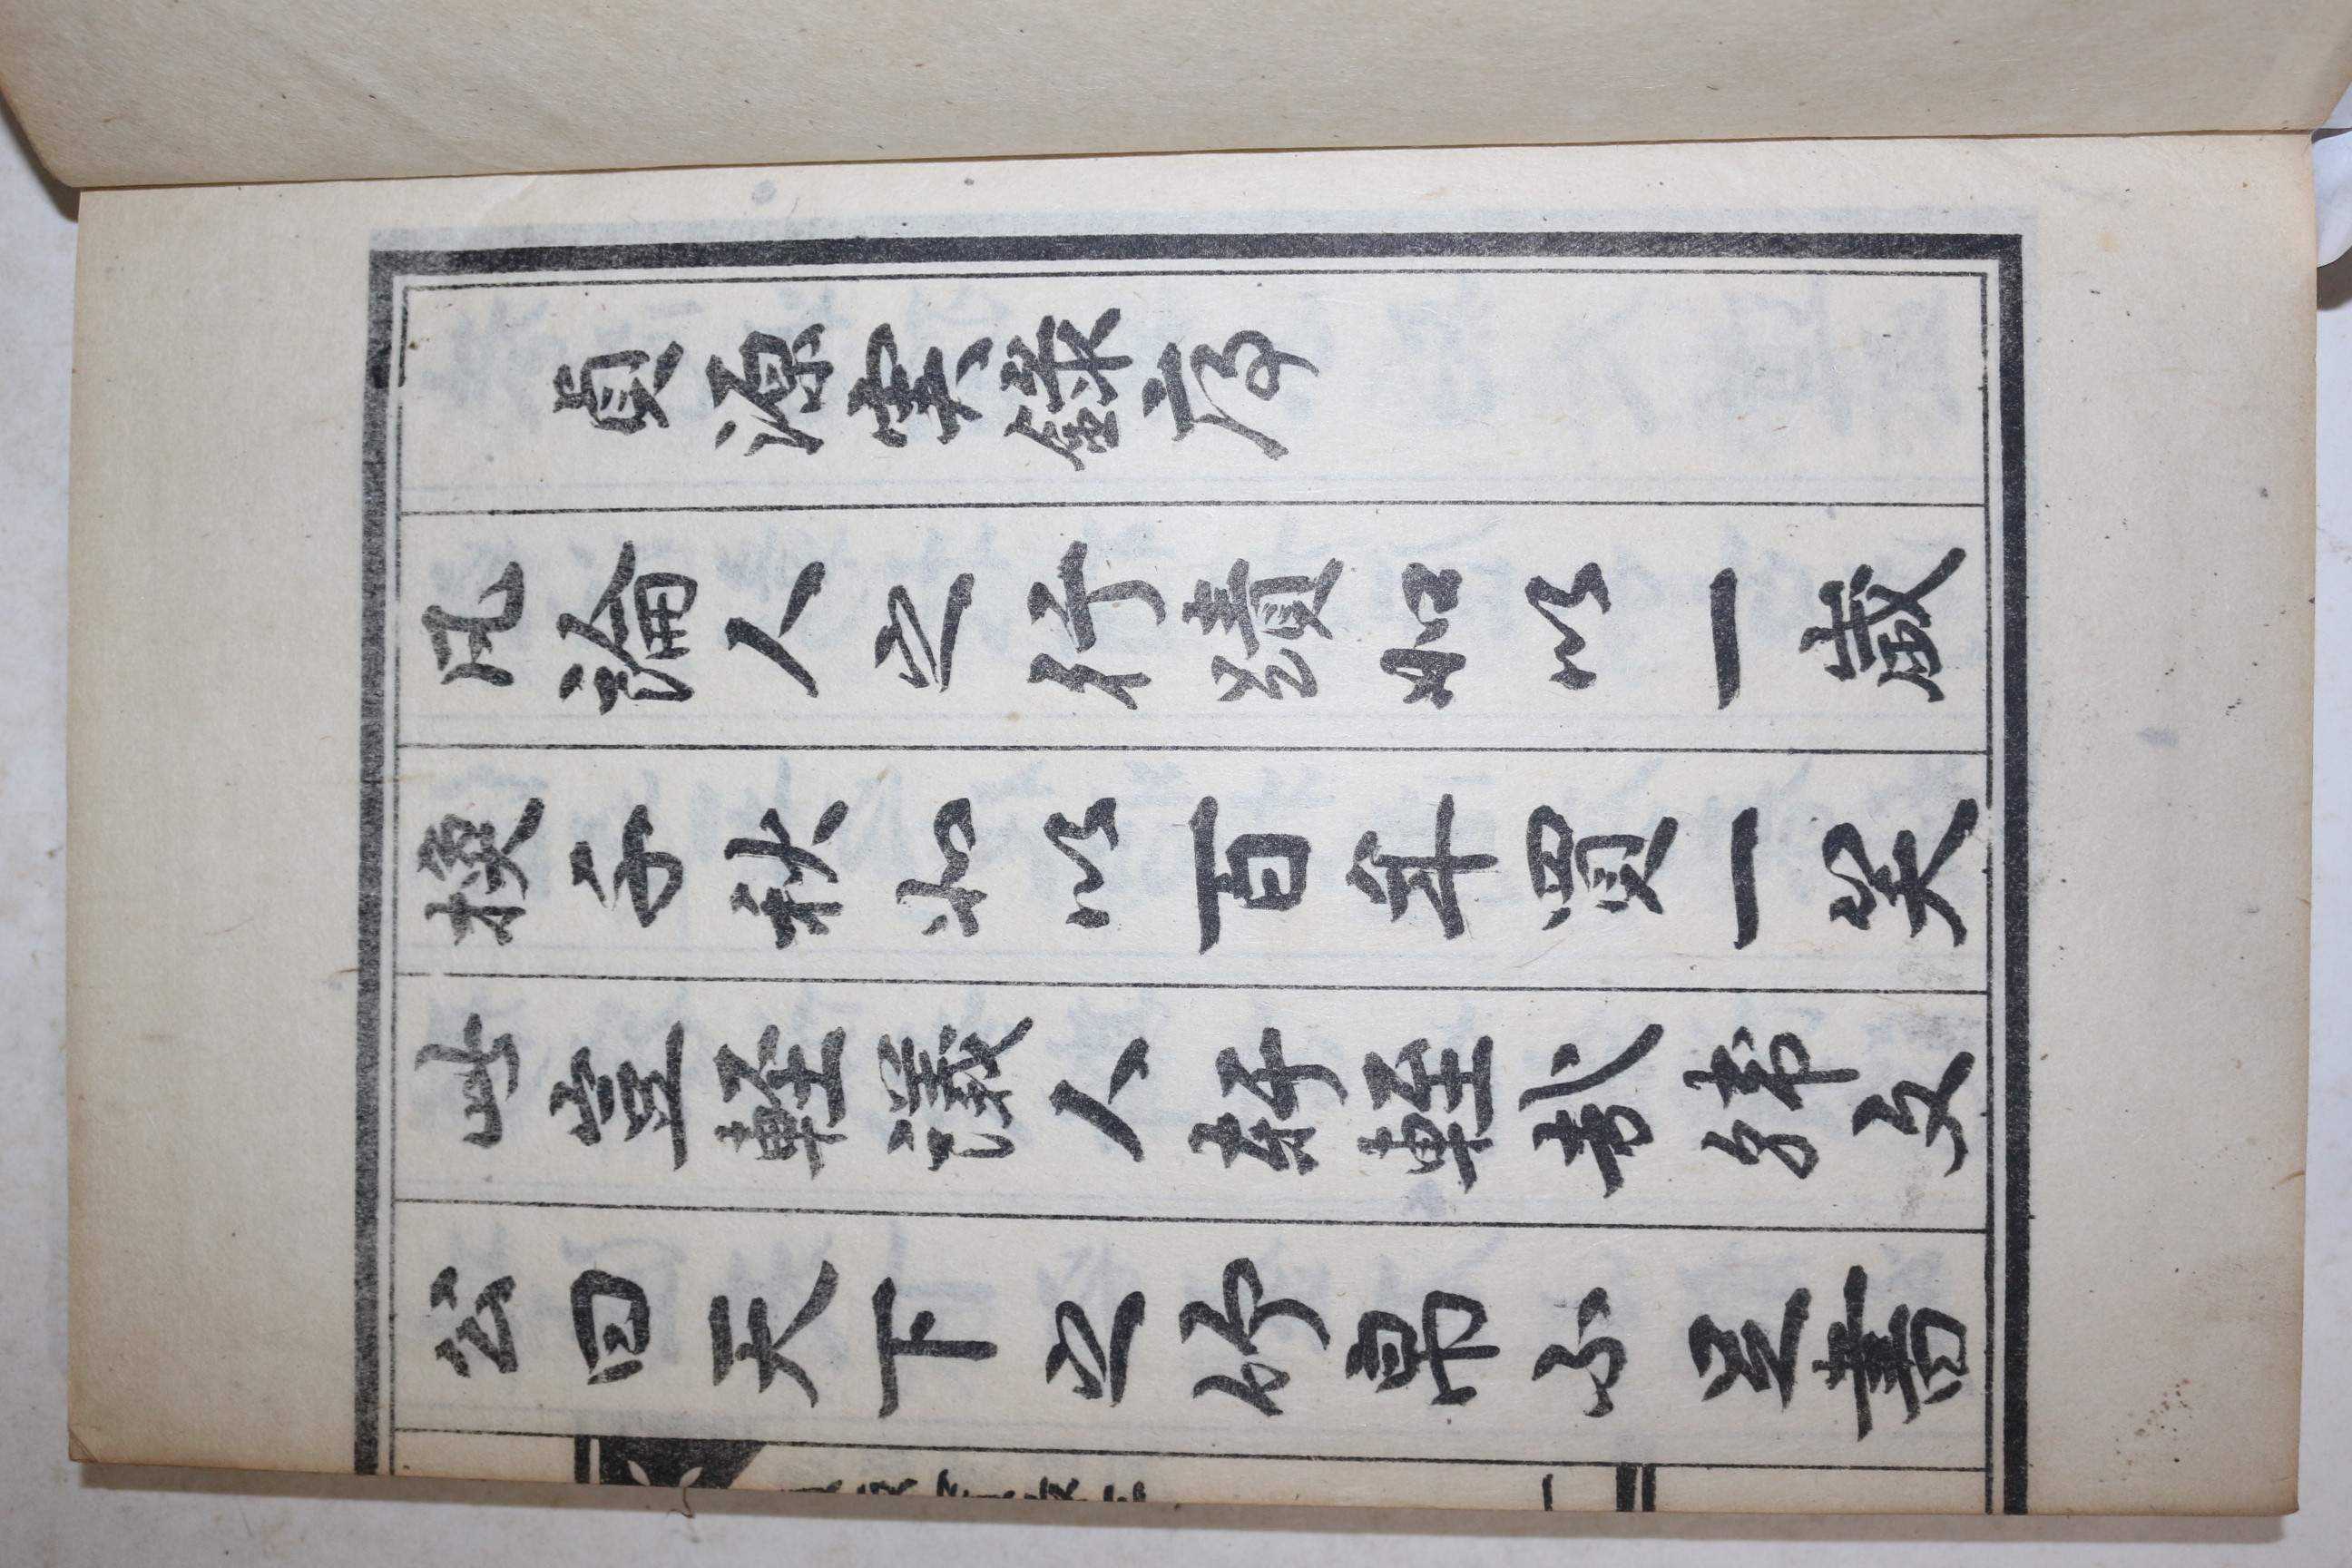 貞源実錄序
凡論人之行蹟如以一歲
換千秋如以百年買一笑
此豈軽議人軒輊哉韓文
公曰天下之竹帛不足書